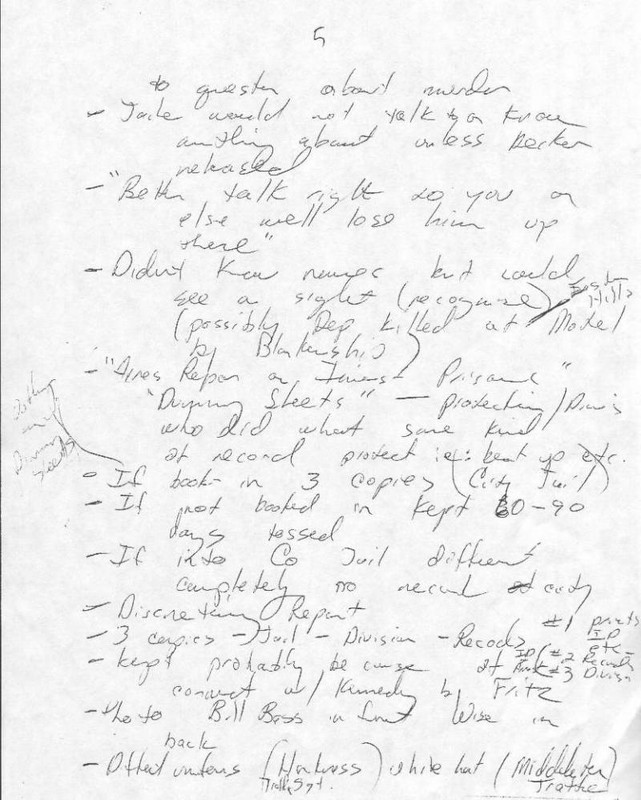 5
to question about murder
- Jack would not talk to or know
anything about unless Decker
released
- "Better talk right to you or
else we'll lose him up
there"
- Didn't know names but could
see a sight (recognize)
(possibly Dep killed at Motel
by Blankenship)
- "Arres Repor on Invest Prisoner"
"Dummy Sheets" — protecting / Divis
who did what some kind
of record protect ie: beat up etc.
- If book in 3 copies (City Jail)
- If not booked in kept 60-90
days tossed
- If into Co Jail different
completely no record of city
- Report
- 3 copies - Jail - Division - Records
#1 prints
ID
etc -
#2 Records
#3 Division
- kept probably because of
connect w/ Kennedy by Fritz
- Photo Bill Bass in front Wise in
back
- Different uniforms (Harkness) white hat (Middleton)
Traffic Sgt. Traffic
Nothing
until
Dummy
Sheets